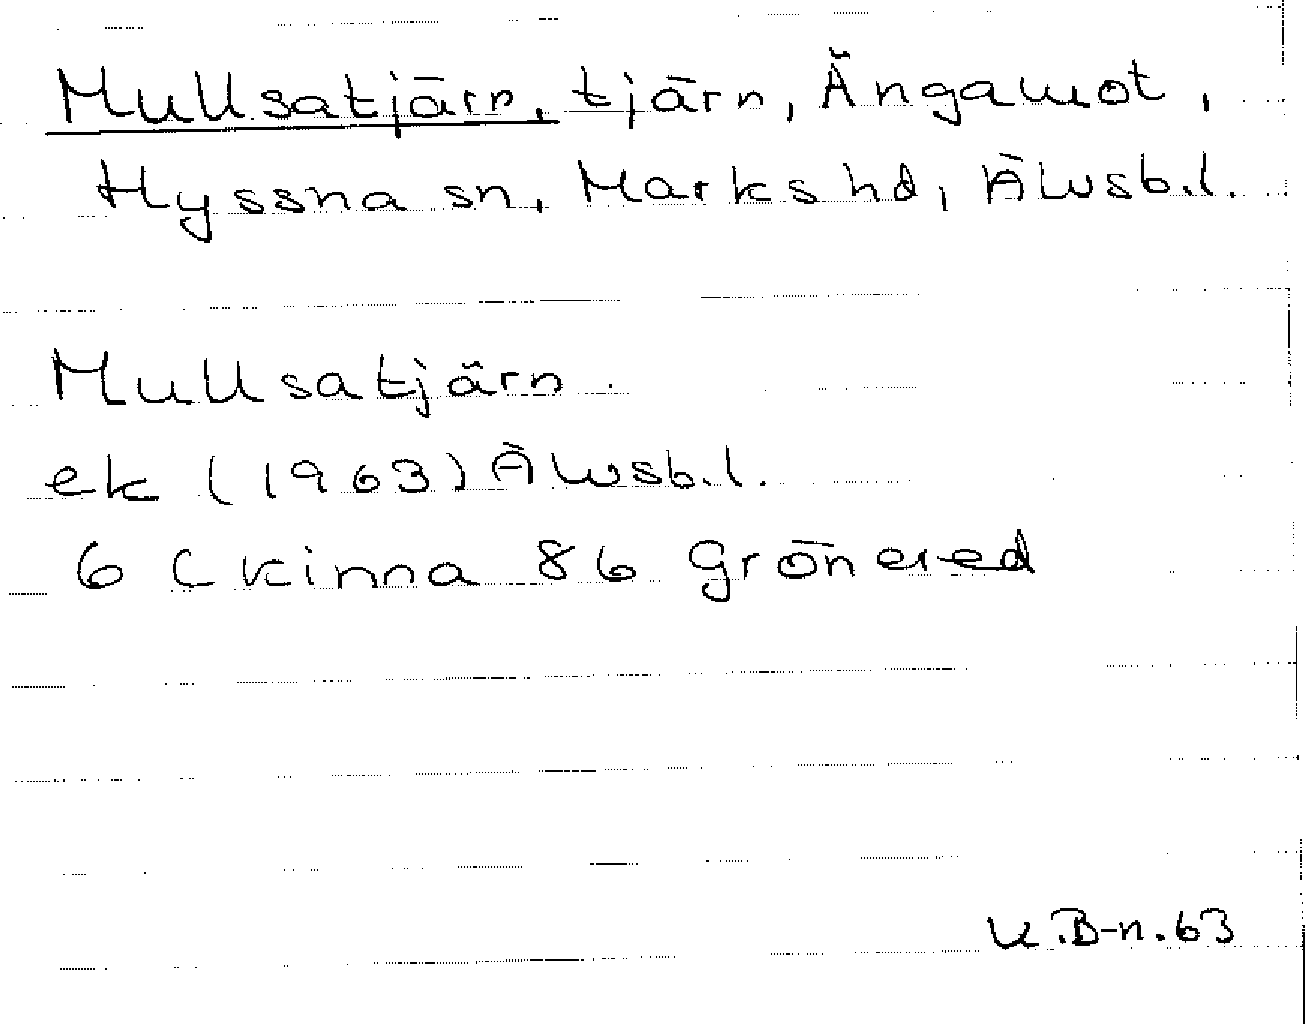 Mullsatjärn, tjärn, Ängamot,
Hyssna sn, Marks hd, Älvsb.l.
Mullsatjärn
ek (1963) Älvsb.l.
6 C Kinna 8b Grönered
K.B-n.63